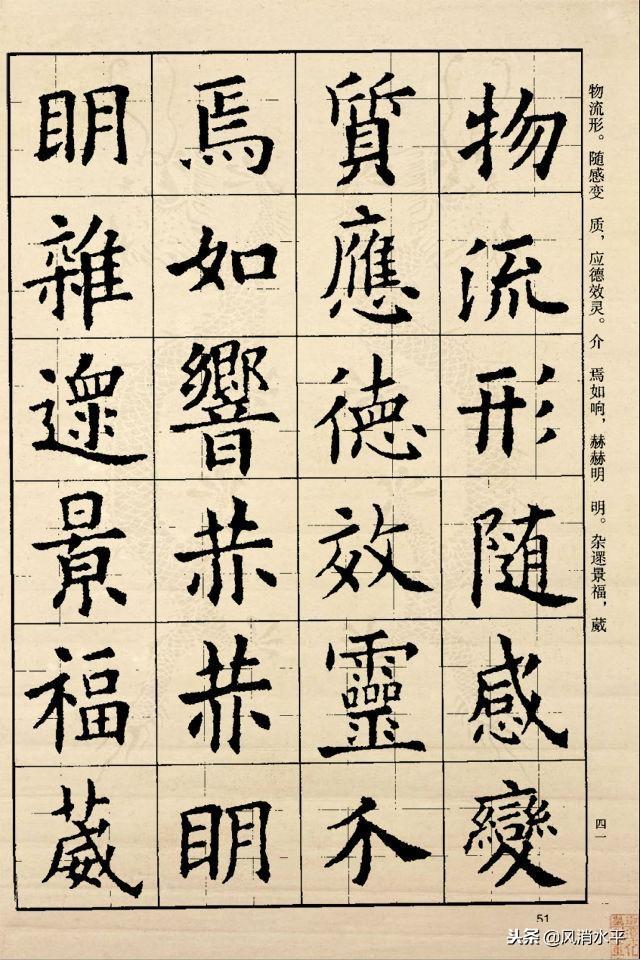 物流形。随感变　质，应德效灵。介　焉如响，赫赫明　明。杂遝景福，葳
物流形随感變
質應德效靈介
焉如響赫赫眀
眀雜遝景福葳
四一
51
头条 @风消水平